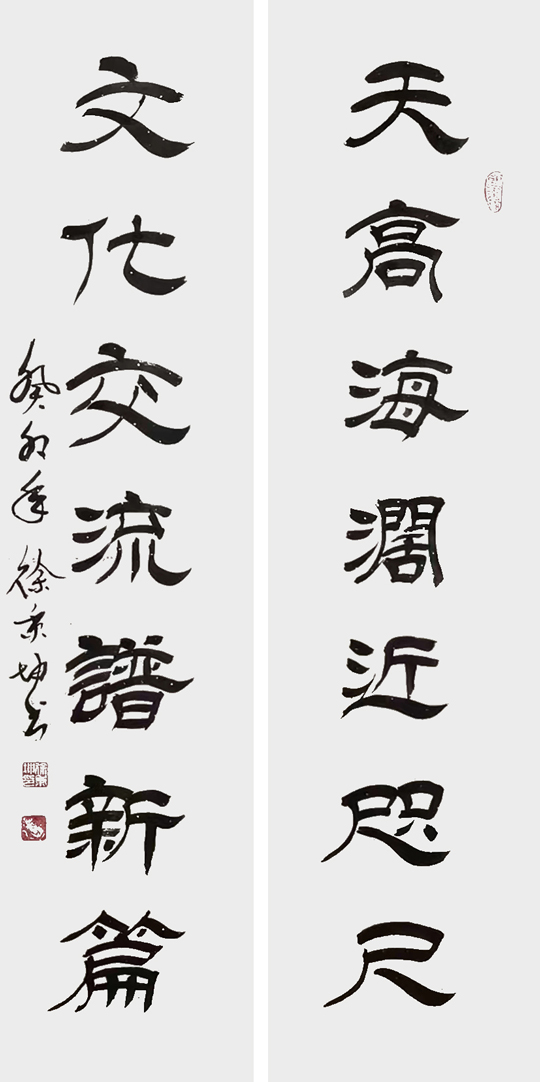 天高海濶近咫尺
文化交流譜新篇
癸卯年 徐東坤书